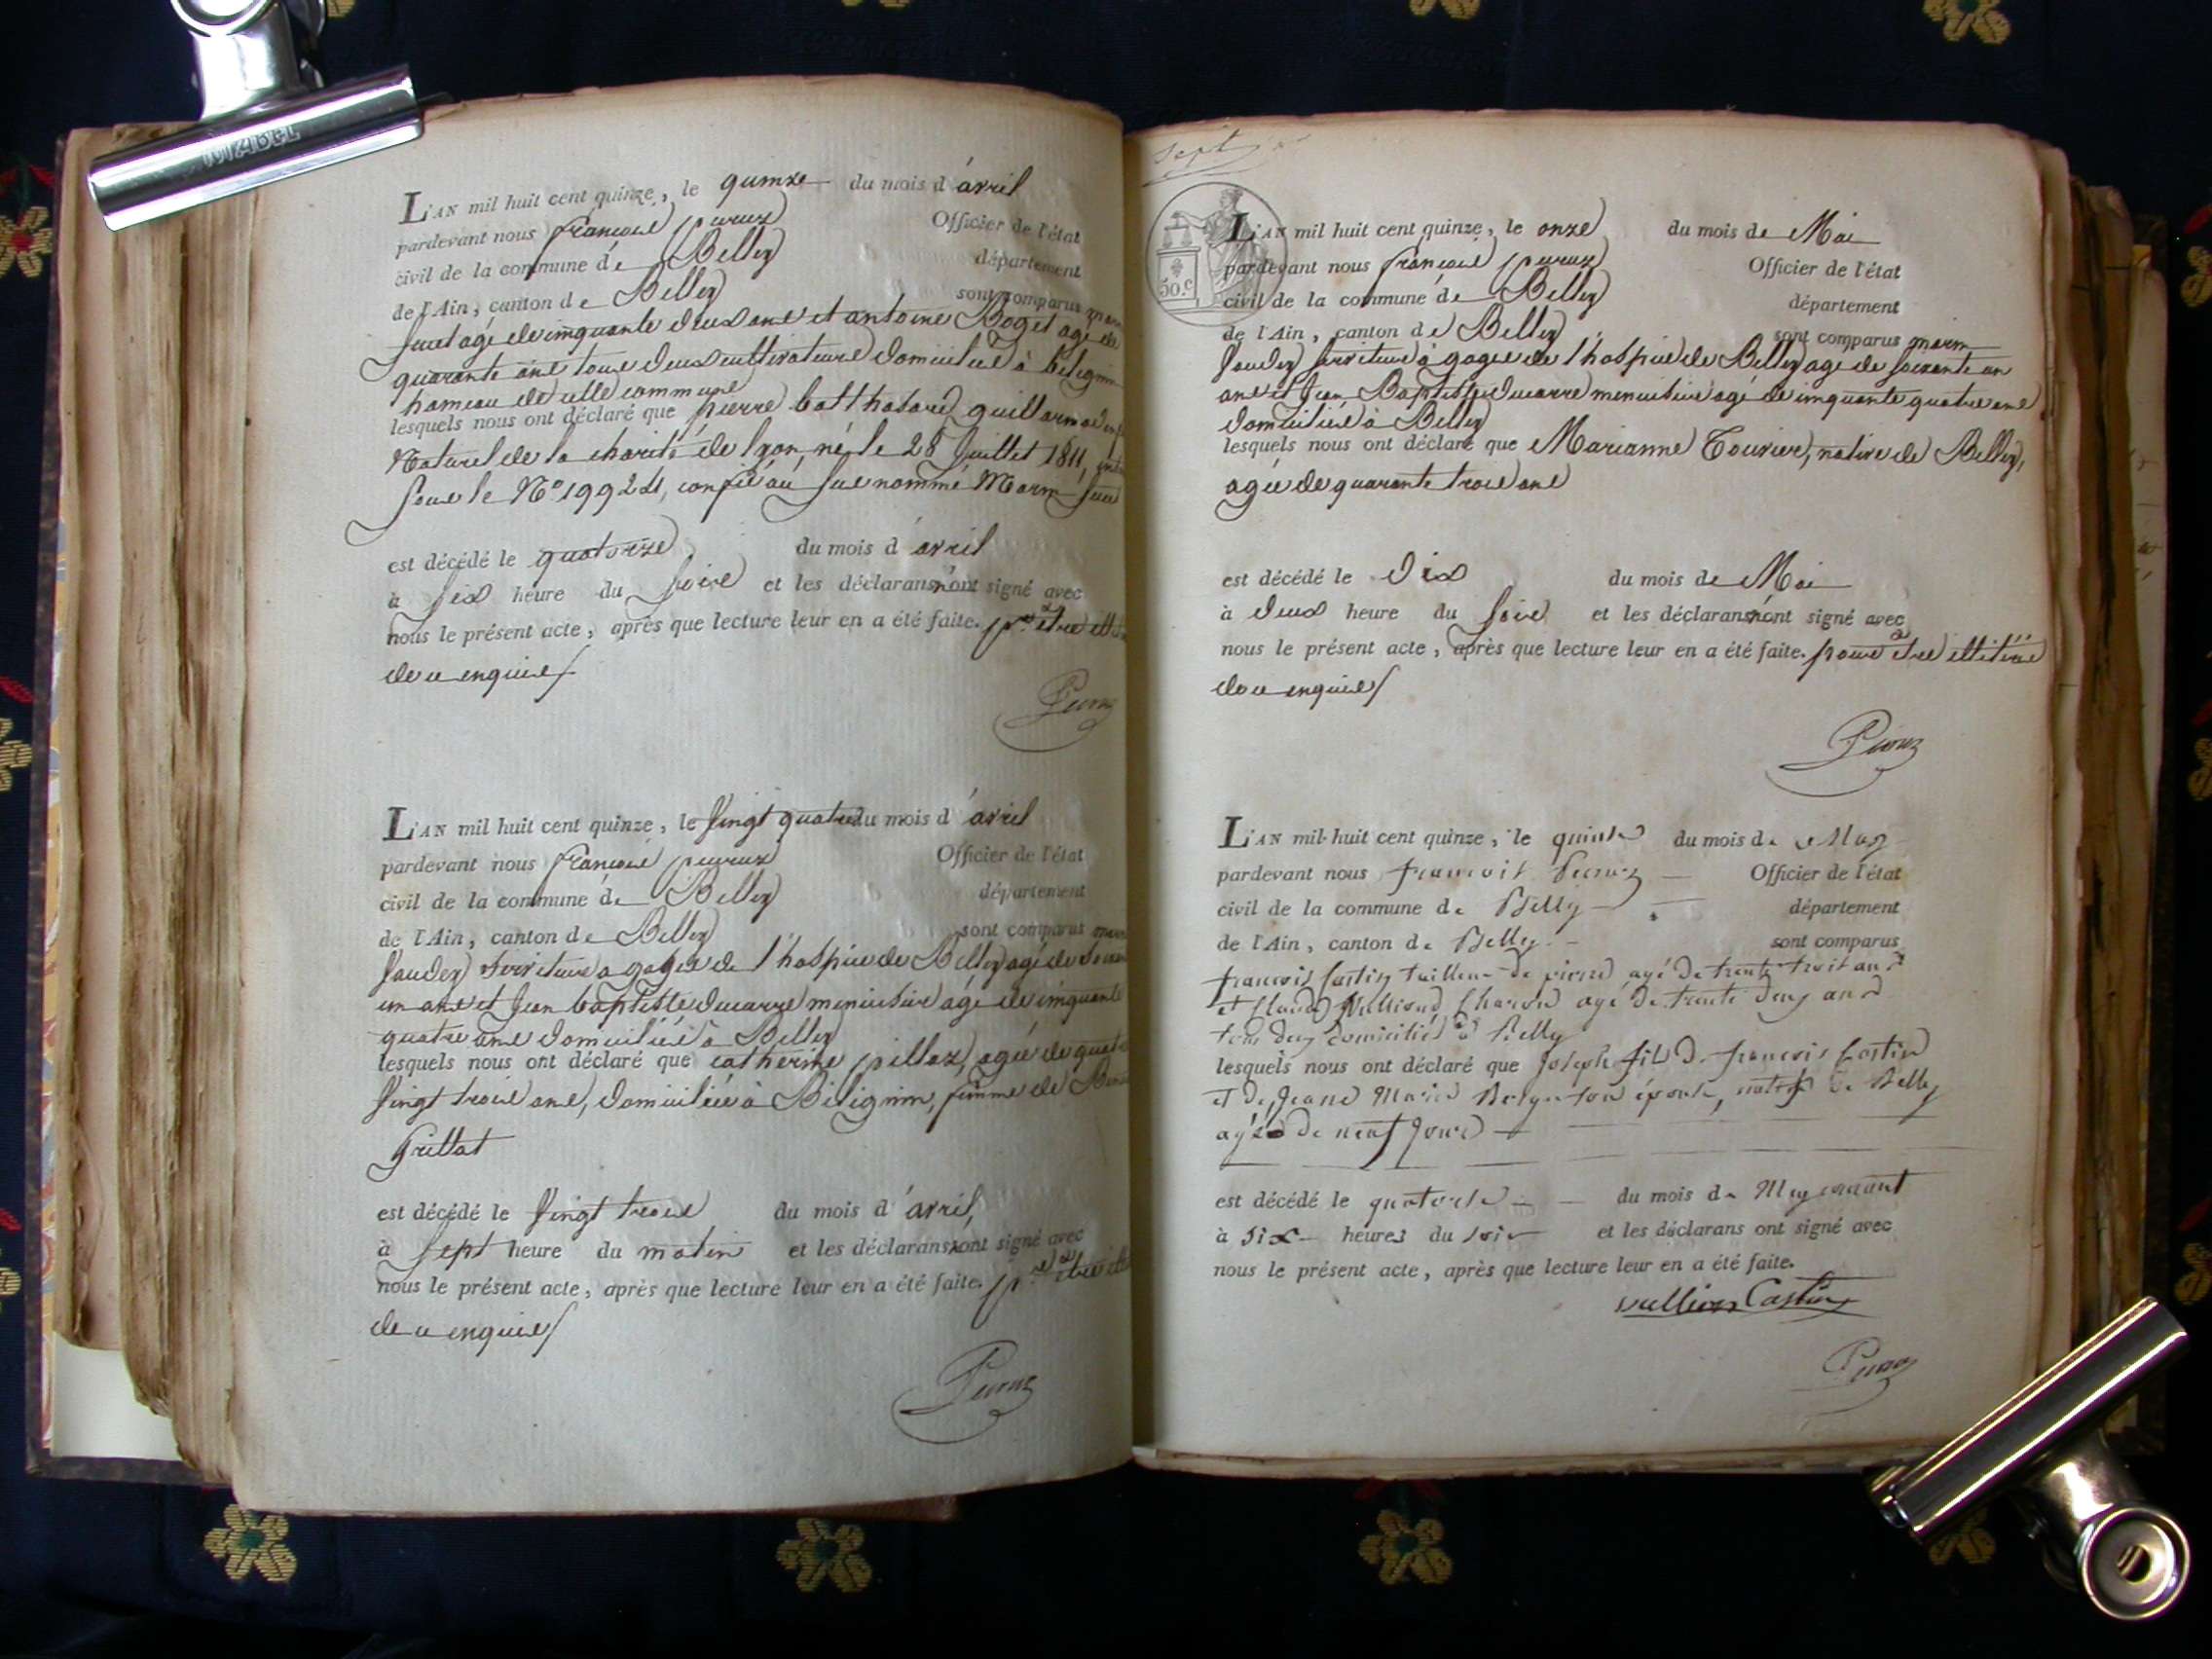 L'AN mil huit cent quinze, le quinze du mois d'avril
pardevant nous françois peruux Officier de l'état
civil de la commune de Belley département
de l'Ain, canton de Belley sont comparus
agé de cinquante deux ans et antoine Boget agé de
quarante ans tous deux cultivateurs domiciliés à Bilignin
hameau de cette commune
lesquels nous ont déclaré que pierre balthasard guillarmod
Naturel de la charité de lyon, né le 28 Juillet 1811,
Sous le N° 19924, confié au sus nommé Marin
est décédé le quatorze du mois d'avril
à six heure du soir et les déclarans n'ont signé avec
nous le présent acte, après que lecture leur en a été faite. pr être
de ce enquis
L'AN mil huit cent quinze, le vingt quatre du mois d'avril
pardevant nous françois Officier de l'état
civil de la commune de Belley département
de l'Ain, canton de Belley sont comparus
serviteur à gages de l'hospice de Belley agé de
un ans et Jean baptiste ducarre menuisier âgé de cinquante
quatre ans domiciliés à Belley
lesquels nous ont déclaré que catherine pillaz, agée de quatre
vingt trois ans, domiciliée à Bilignin, femme de
Grillat
est décédé le vingt trois du mois d'avril,
à sept heure du matin et les déclarans n'ont signé avec
nous le présent acte, après que lecture leur en a été faite. pr être
de ce enquis
Sept
50.c
L'AN mil huit cent quinze, le onze du mois de Mai
pardevant nous françois Officier de l'état
civil de la commune de Belley département
de l'Ain, canton de Belley sont comparus marin
serviteur à gages de l'hospice de Belley agé de soixante un
ans et Jean Baptiste ducarre menuisier agé de cinquante quatre ans
domiciliés à Belley
lesquels nous ont déclaré que Marianne Tourier, native de Belley,
agée de quarante trois ans
est décédé le dix du mois de Mai
à deux heure du soir et les déclarans n'ont signé avec
nous le présent acte, après que lecture leur en a été faite. pour être illitérés
de ce enquis
L'AN mil huit cent quinze, le quinze du mois de May
pardevant nous françois Officier de l'état
civil de la commune de Belley département
de l'Ain, canton de Belley sont comparus
francois Castin tailleur de pierre, agé de trente trois ans
et Claude Vulliod Charon agé de trente deux ans
tous deux domiciliés à Belley
lesquels nous ont déclaré que Joseph fils de francois Castin
et de Jeane Marie son épouse, natif de Belley
agé de neuf jours
est décédé le quatorze du mois de May courant
à six heures du soir et les déclarans ont signé avec
nous le présent acte, après que lecture leur en a été faite.
Castin